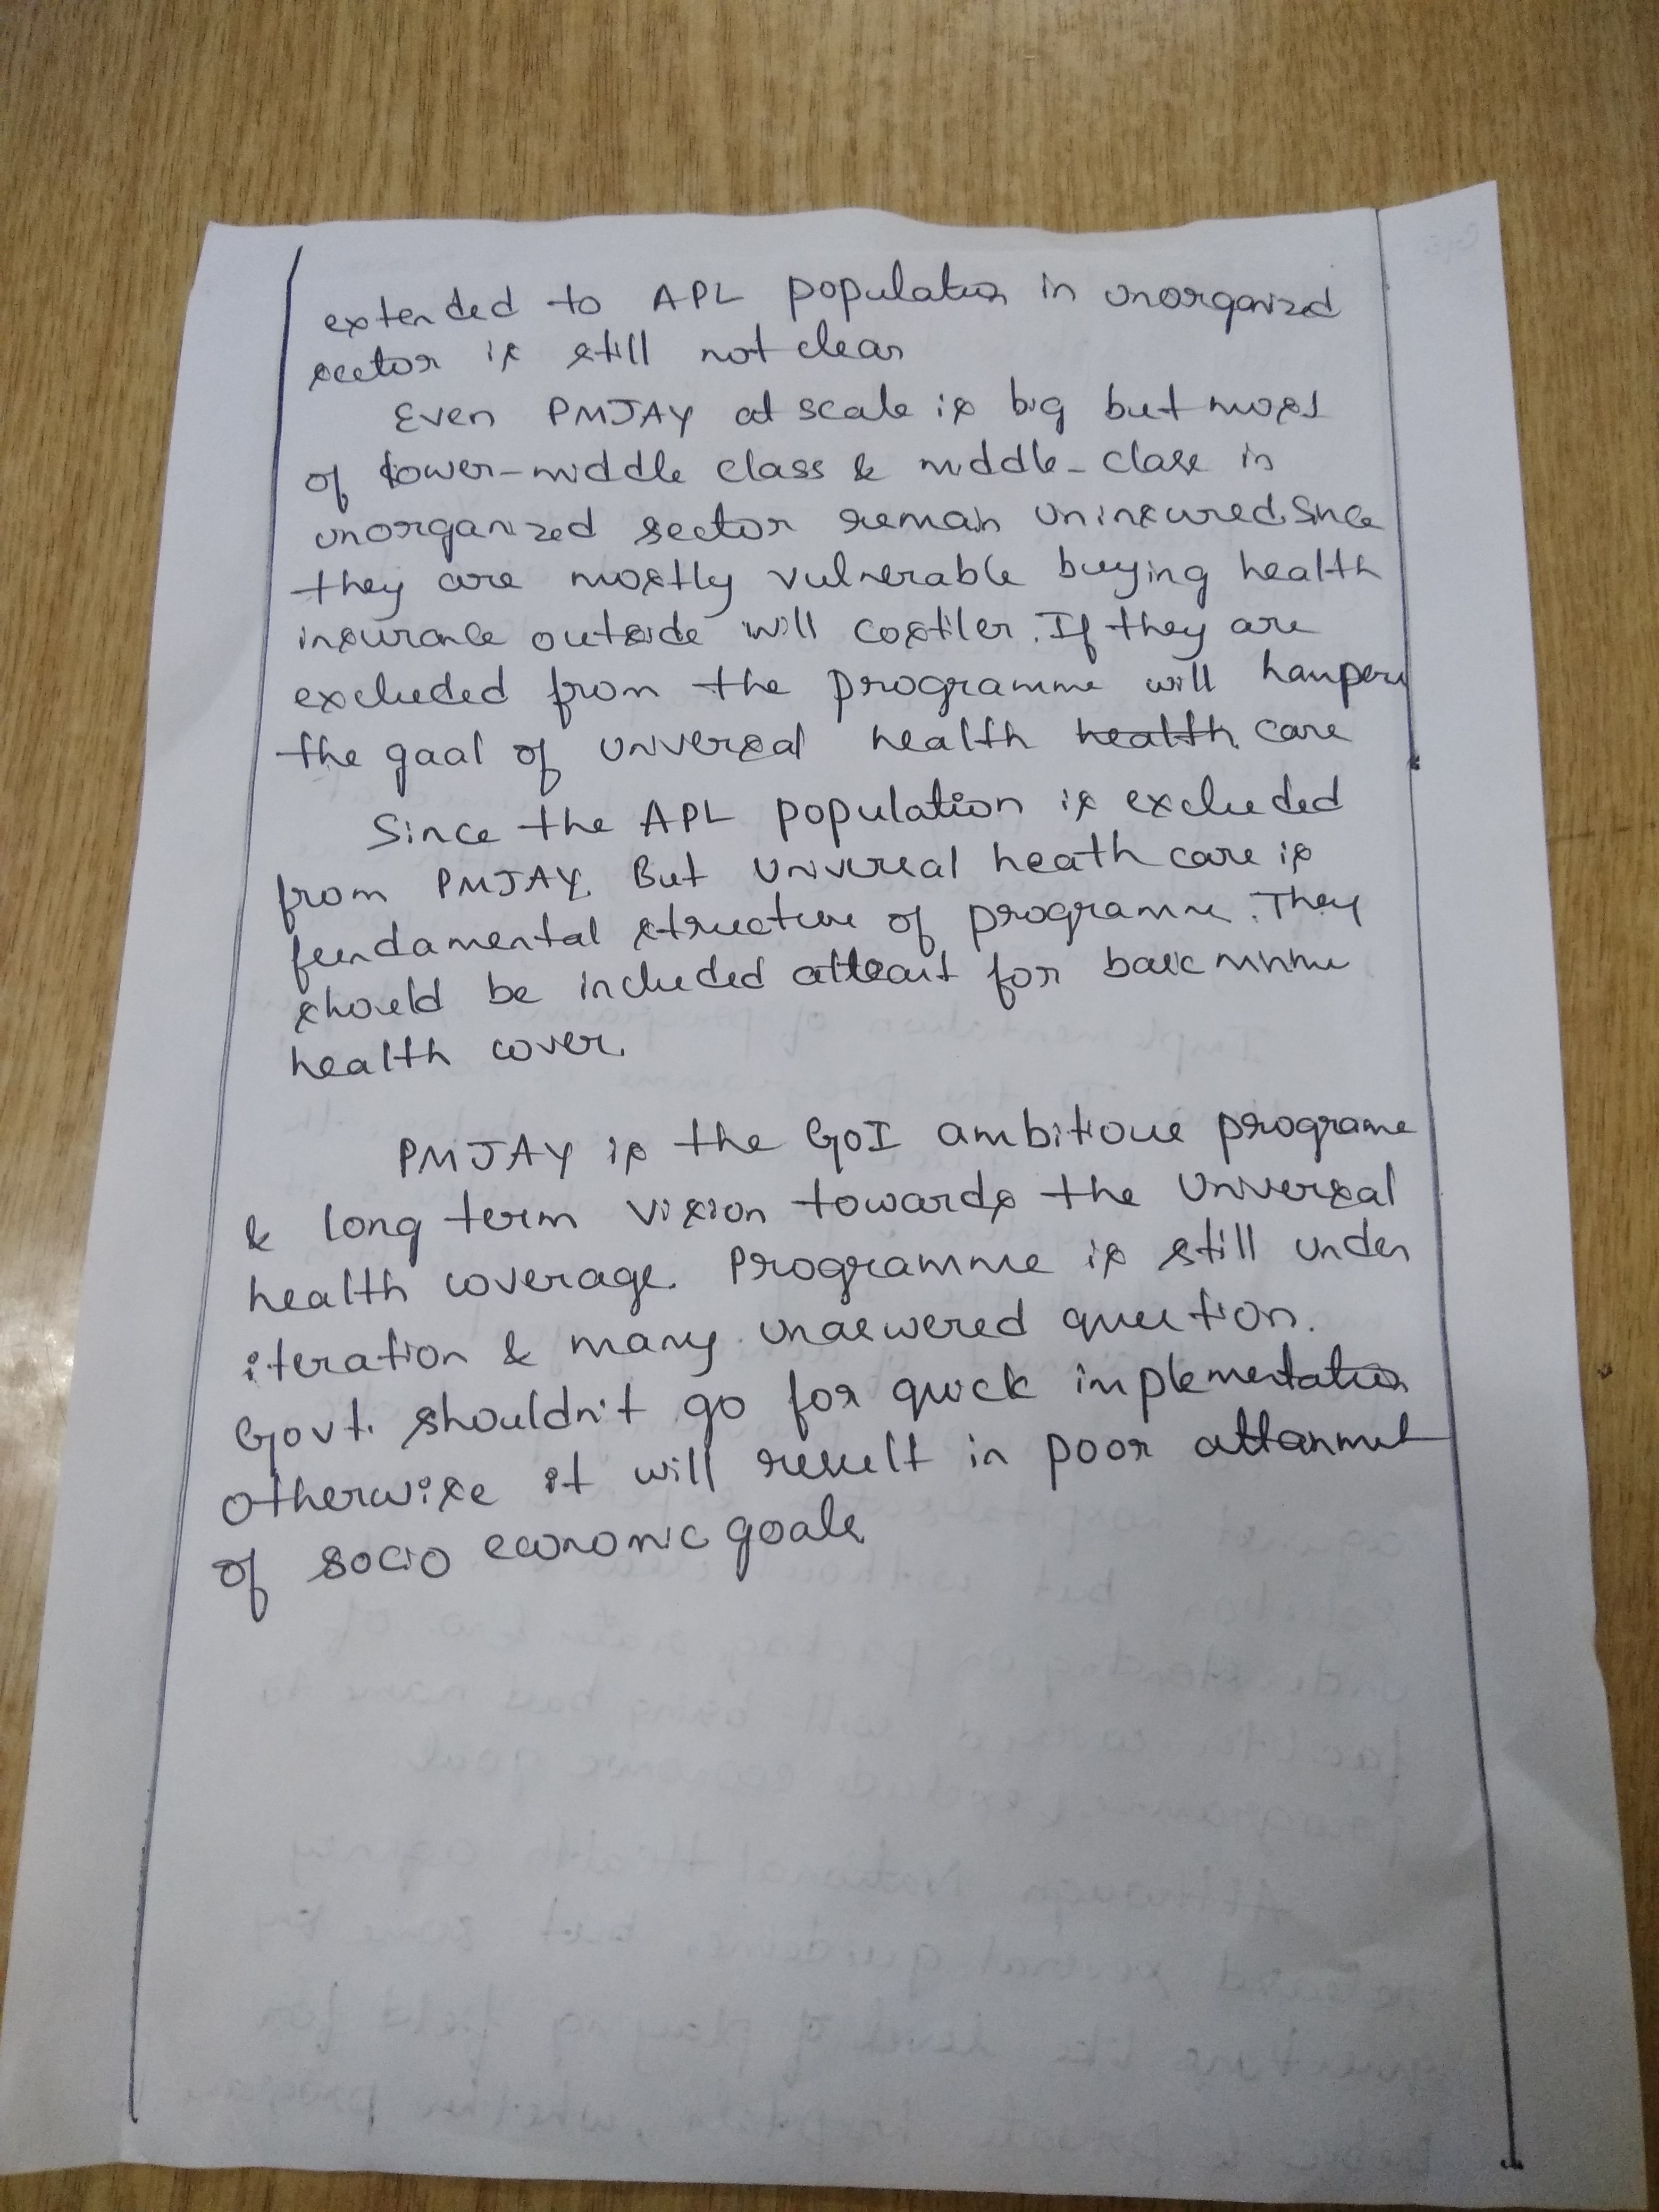 extended to APL population in unorganized
sector is still not clear
Even PMJAY at scale is big but most
of lower-middle class & middle-class in
unorganized sector remain uninsured. Since
they are mostly vulnerable buying health
insurance outside will costiler. If they are
excluded from the programme will hamper
the goal of universal health health care
Since the APL population is excluded
from PMJAY. But Universal heath care is
fundamental structure of programme. They
should be included atleast for basic
health cover.
PMJAY is the GoI ambitious programe
& long term vision towards the Universal
health coverage. Programme is still under
iteration & many unaswered question.
Govt. shouldn't go for quick implementation
otherwise it will result in poor attanment
of socio economic goals